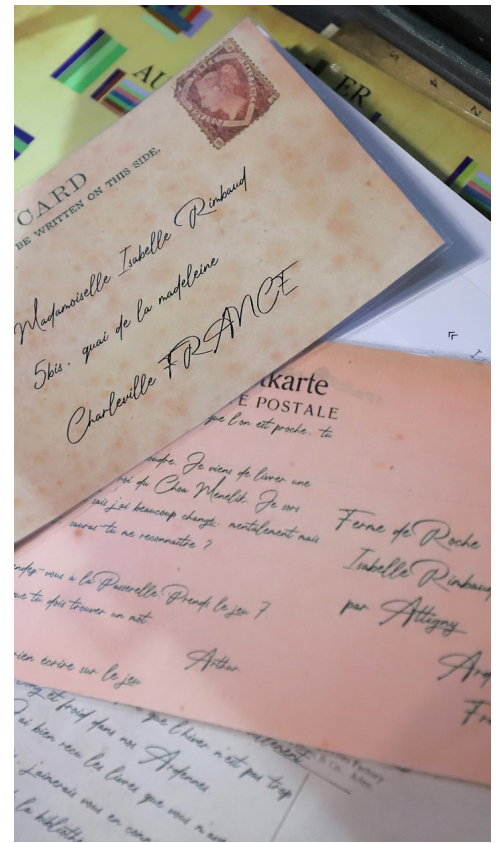 AU
ER
S A N
CARD
BE WRITTEN ON THIS SIDE.
Madamoiselle Isabelle Rimbaud
5bis, quai de la madeleine
Charleville FRANCE
karte
E POSTALE
que l'on est proche. tu
oudre. Je viens de livrer une
roi du Choa Menelik. Je sors
mais j'ai beaucoup changé, mentalement mais
sauras-tu me reconnaître ?
endez-vous à la Passerelle. Prends le jeu 7
que tu dois trouver un mot
Arthur
rien écrire sur le jeu
Ferme de Roche
Isabelle Rimbaud
par Attigny
Ard
Fra
et froid dans nos Ardennes
que l'hiver n'est pas trop
J'ai bien reçu les livres que vous m'avez
j'aimerais vous en
la biblioth